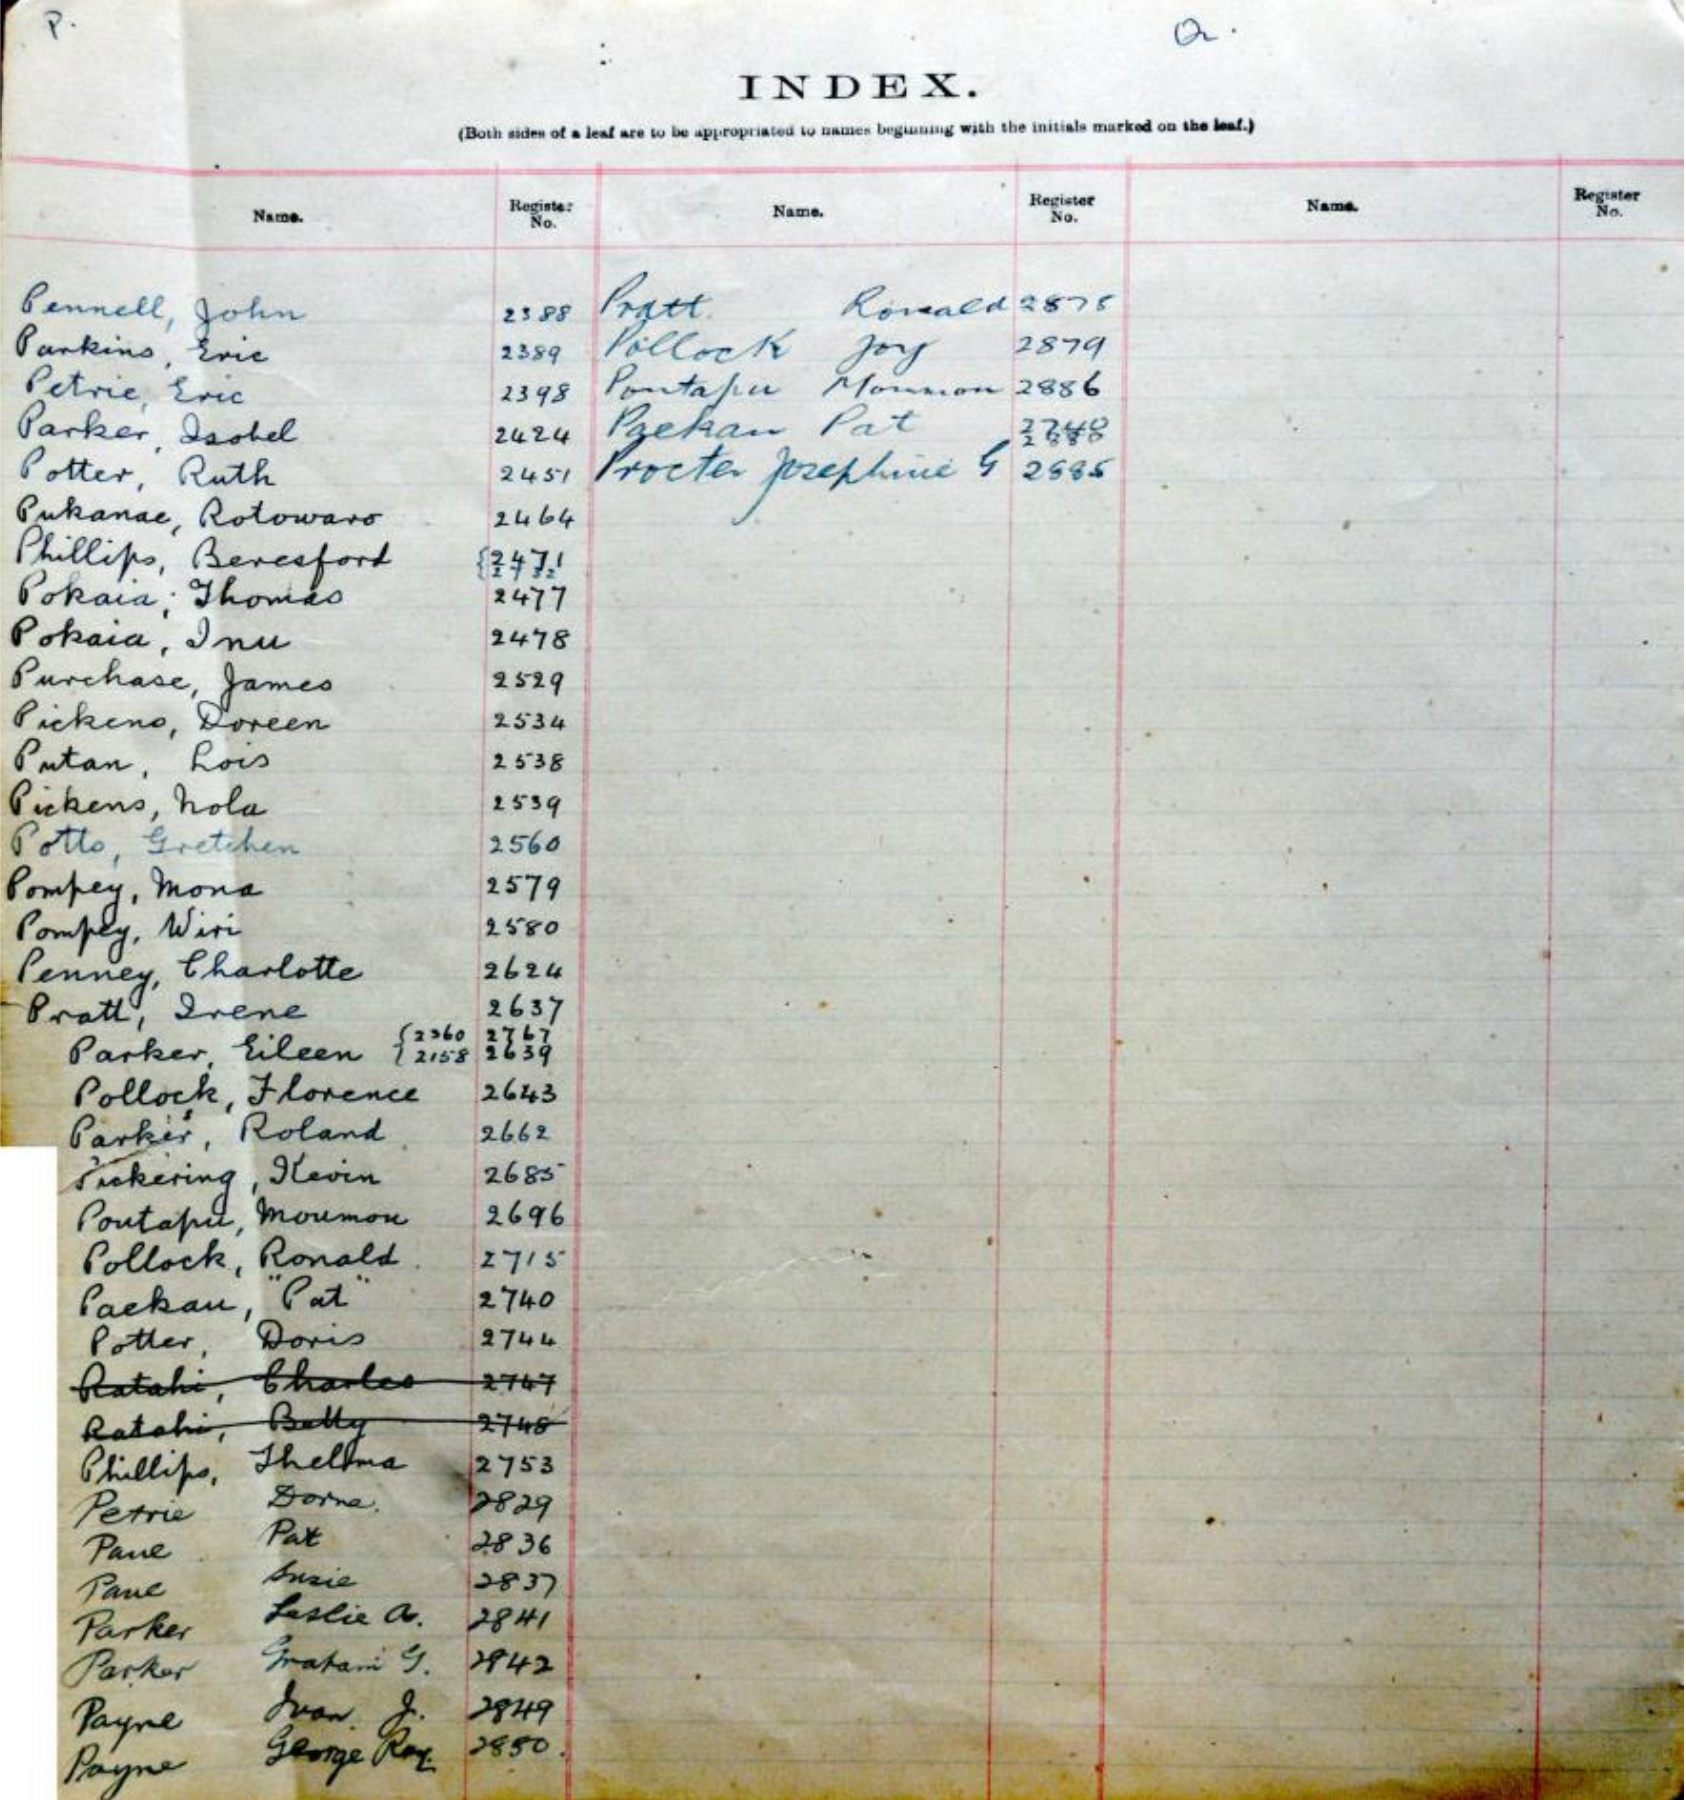 P.
Q.
INDEX.
(Both sides of a leaf are to be appropriated to names beginning with the initials marked on the leaf.)
Name. Register No. Name. Register No. Name. Register No.
Pennell, John 2388 Pratt Ronald 2875
Parkins, Eric 2389 Pollock Joy 2879
Petrie, Eric 2398 Poutapu Moumon 2886
Parker, Isobel 2424 Paekau Pat 2740
Potter, Ruth 2451 Procter Josephine G 2885
Pukanae, Rotowaro 2464
Phillips, Beresford {2471
Pokaia; Thomas 2477
Pokaia, Inu 2478
Purchase, James 2529
Pickens, Doreen 2534
Putan, Lois 2538
Pickens, Nola 2539
Potts, Gretchen 2560
Pompey, Mona 2579
Pompey, Wiri 2580
Penney, Charlotte 2624
Pratt, Irene 2637
{2360 2767
Parker, Eileen {2158 2639
Pollock, Florence 2643
Parker, Roland 2662
Pickering, Kevin 2685
Poutapu, Moumon 2696
Pollock, Ronald 2715
Paekau, "Pat" 2740
Potter, Doris 2744
Ratahi, Charles 2747
Ratahi, Betty 2748
Phillips, Thelma 2753
Petrie Dorne. 2829
Paue Pat 2836
Paue Susie 2837
Parker Leslie A. 2841
Parker Graham G. 2842
Payne Ivan J. 2849
Payne George Roy. 2850.